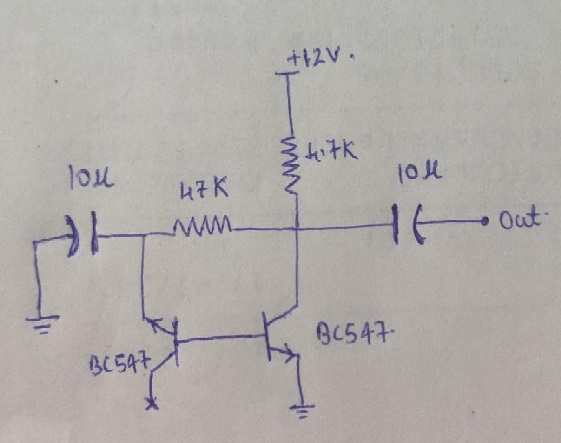 +12V.
4.7K
10µ
47K
10µ
Out.
BC547
BC547.